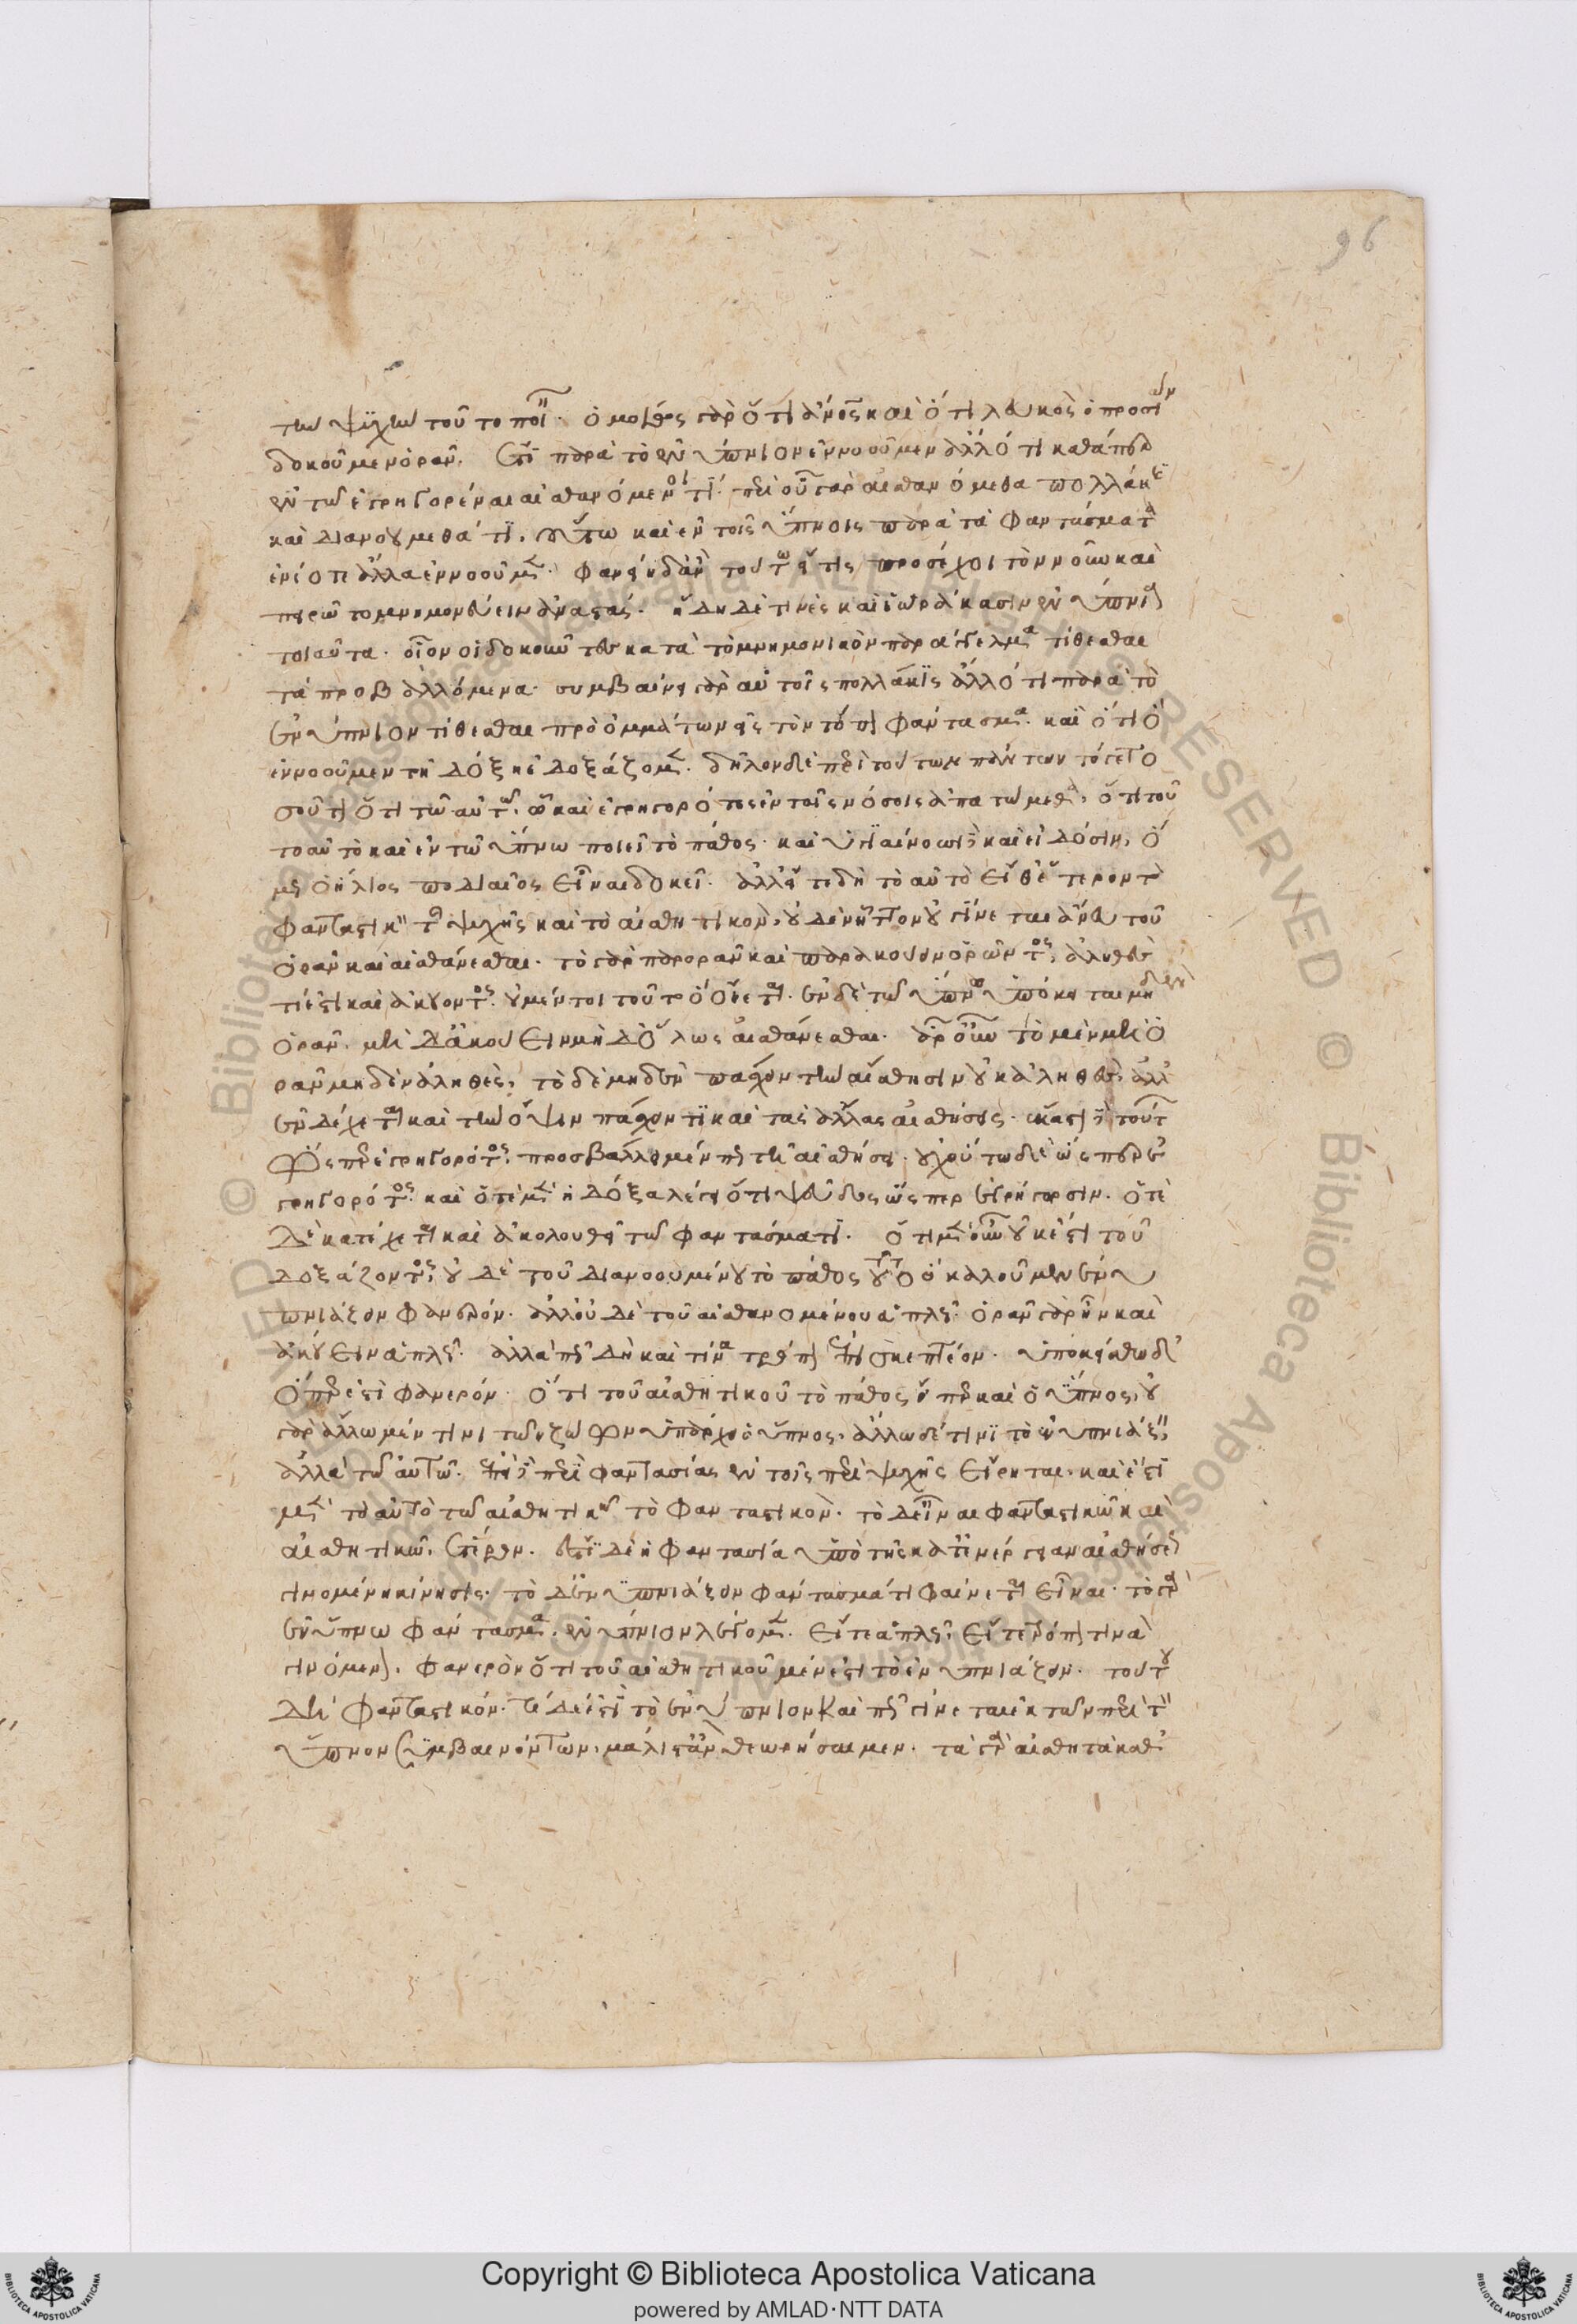 τὴν ψυχὴν τοῦτο ποιεῖν. ὁμοίως γὰρ ὅτι ἄνθρωπος καὶ ὅτι λευκὸς ὁ προσιὼν
δοκοῦμεν ὁρᾶν. ἔτι παρὰ τὸ ἐνύπνιον ἐννοοῦμεν ἄλλό τι καθάπερ
ἐν τῷ ἐγρηγορέναι αἰσθανόμενοί τι. περὶ οὗ γὰρ αἰσθανόμεθα πολλάκις
καὶ διανοούμεθά τι. οὕτω καὶ ἐν τοῖς ὕπνοις παρὰ τὰ φαντάσματα
ἐνίοτε ἄλλα ἐννοοῦμεν. φανείη δ' ἂν τούτω εἴ τις προσέχοι τὸν νοῦν καὶ
πειρῶτο μνημονεύειν ἀναστάς. ἤδη δέ τινες καὶ ἑωράκασιν ἐνύπνια
τοιαῦτα. οἷον οἱ δοκοῦντες κατὰ τὸ μνημονικὸν παράγγελμα τίθεσθαι
τὰ προβαλλόμενα. συμβαίνει γὰρ αὐτοῖς πολλάκις ἄλλό τι παρὰ τὸ
ἐνύπνιον τίθεσθαι πρὸ ὀμμάτων εἰς τὸν τόπον φάντασμα. καὶ ὅτι ὃ
ἐννοοῦμεν τῇ δόξῃ δοξάζομεν. δῆλον δὲ περὶ τούτων πάντων τό γε το
σοῦτον ὅτι τῷ αὐτῷ ᾧ καὶ ἐγρηγορότες ἐν τοῖς νόσοις ἀπατώμεθα, ὅτι τοῦ
το αὐτὸ καὶ ἐν τῷ ὕπνω ποιεῖ τὸ πάθος. καὶ ὑγιαίνουσι καὶ εἰδόσιν, ὅ
μως ὁ ἥλιος ποδιαῖος εἶναι δοκεῖ. ἀλλ' εἴτε δὴ τὸ αὐτὸ εἴθ' ἕτερον τὸ
φανταστικὸν τῆς ψυχῆς καὶ τὸ αἰσθητικὸν, οὐδὲν ἧττον οὐ γίνεται ἄνευ τοῦ
ὁρᾶν καὶ αἰσθάνεσθαι. τὸ γὰρ παρορᾶν καὶ παρακούειν ὁρῶντος, ἀληθές
τί ἐστι καὶ ἀκούοντος. οὐ μέντοι τοῦτο ὃ οἴεται. ἐν δὲ τῷ ὕπνῳ ὑπόκειται μηδὲν
ὁρᾶν. μὴ δ' ἀκούειν μὴ δ' ὅλως αἰσθάνεσθαι. ἆρ' οὖν τὸ μὲν μὴ ὁ
ρᾶν μηδὲν ἀληθὲς, τὸ δὲ μηδὲν πάσχειν τὴν αἴσθησιν οὐκ ἀληθές, ἀλλ'
ἐνδέχεται καὶ τὴν ὄψιν πάσχειν τι καὶ τὰς ἄλλας αἰσθήσεις. ἕκαστον δὲ τούτων
ὥσπερ ἐγρηγορότος, προσβάλλει μέν πως τῇ αἰσθήσει. οὐχ οὕτω δὲ ὥσπερ ἐ
γρηγορότος. καὶ ὁτὲ μὲν ἡ δόξα λέγει ὅτι ψεῦδος ὥσπερ ἐγρήγορσιν. ὁτὲ
δὲ κατέχεται καὶ ἀκολουθεῖ τῷ φαντάσματι. ὅτι μὲν οὖν οὐκ ἔστι τοῦ
δοξάζοντος, οὐδὲ τοῦ διανοουμένου τὸ πάθος τοῦτο ὃ καλοῦμεν ἐνυ
πνιάζειν φανερόν. ἀλλ' οὐδὲ τοῦ αἰσθανομένου ἁπλῶς. ὁρᾶν γὰρ ἦν καὶ
ἀκούειν ἁπλῶς. ἀλλὰ πῶς δὴ καὶ τίνα τρόπον ἐστι σκεπτέον. ὑποκείσθω δ'
ὅπερ ἐστὶ φανερόν. ὅτι τοῦ αἰσθητικοῦ τὸ πάθος, εἴπερ καὶ ὁ ὕπνος, οὐ
γὰρ ἄλλω μέν τινι τῶν ζώων ὑπάρχει ὁ ὕπνος, ἄλλω δέ τινι τὸ ἐνυπνιάζειν,
ἀλλὰ τῷ αὐτῷ. ἐπεὶ δὲ περὶ φαντασίας ἐν τοῖς περὶ ψυχῆς εἴρηται. καὶ ἔστι
μὲν τὸ αὐτὸ τῷ αἰσθητικῷ τὸ φανταστικὸν. τὸ δ' εἶναι φανταστικῷ καὶ
αἰσθητικῷ, ἕτερον. ἔστι δὲ ἡ φαντασία ὑπὸ τῆς κατ' ἐνέργειαν αἰσθήσεως
γινομένη κίνησις. τὸ δ' ἐνυπνιάζειν φάντασμά τι φαίνεται εἶναι. τὸ γὰρ
ἐν ὕπνω φάντασμα, ἐνύπνιον λέγομεν. εἴτε ἁπλῶς, εἴτε τρόπον τινὰ
γινόμενον. φανερὸν ὅτι τοῦ αἰσθητικοῦ μέν ἐστι τὸ ἐνυπνιάζειν. τούτου
δ' ᾗ φανταστικόν. τί δ' ἐστὶ τὸ ἐνύπνιον καὶ πῶς γίνεται ἐκ τῶν περὶ τὸν
ὕπνον συμβαινόντων, μάλιστ' ἂν θεωρήσαιμεν. τὰ γὰρ αἰσθητὰ καθ'
96